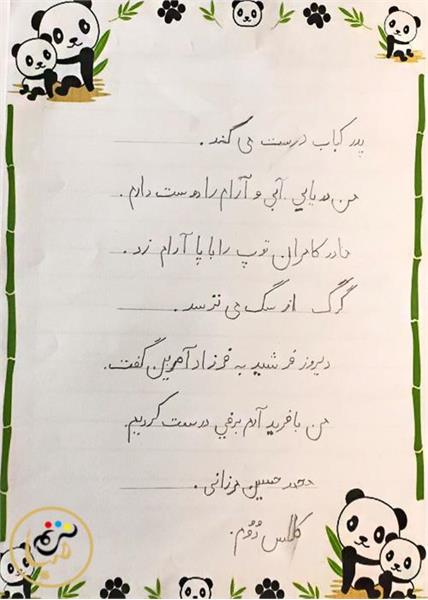 پدر کباب درست می کند.
من دریایی آبی و آرام را دوست دارم.
مادر کامران توپ را با پا آرام زد.
گرگ از سگ می ترسد.
دیروز فرشید به فرزاد آفرین گفت.
من با فرید آدم برفی درست کردیم.
محمد حسین مرزانی.
کلاس دُوّم.